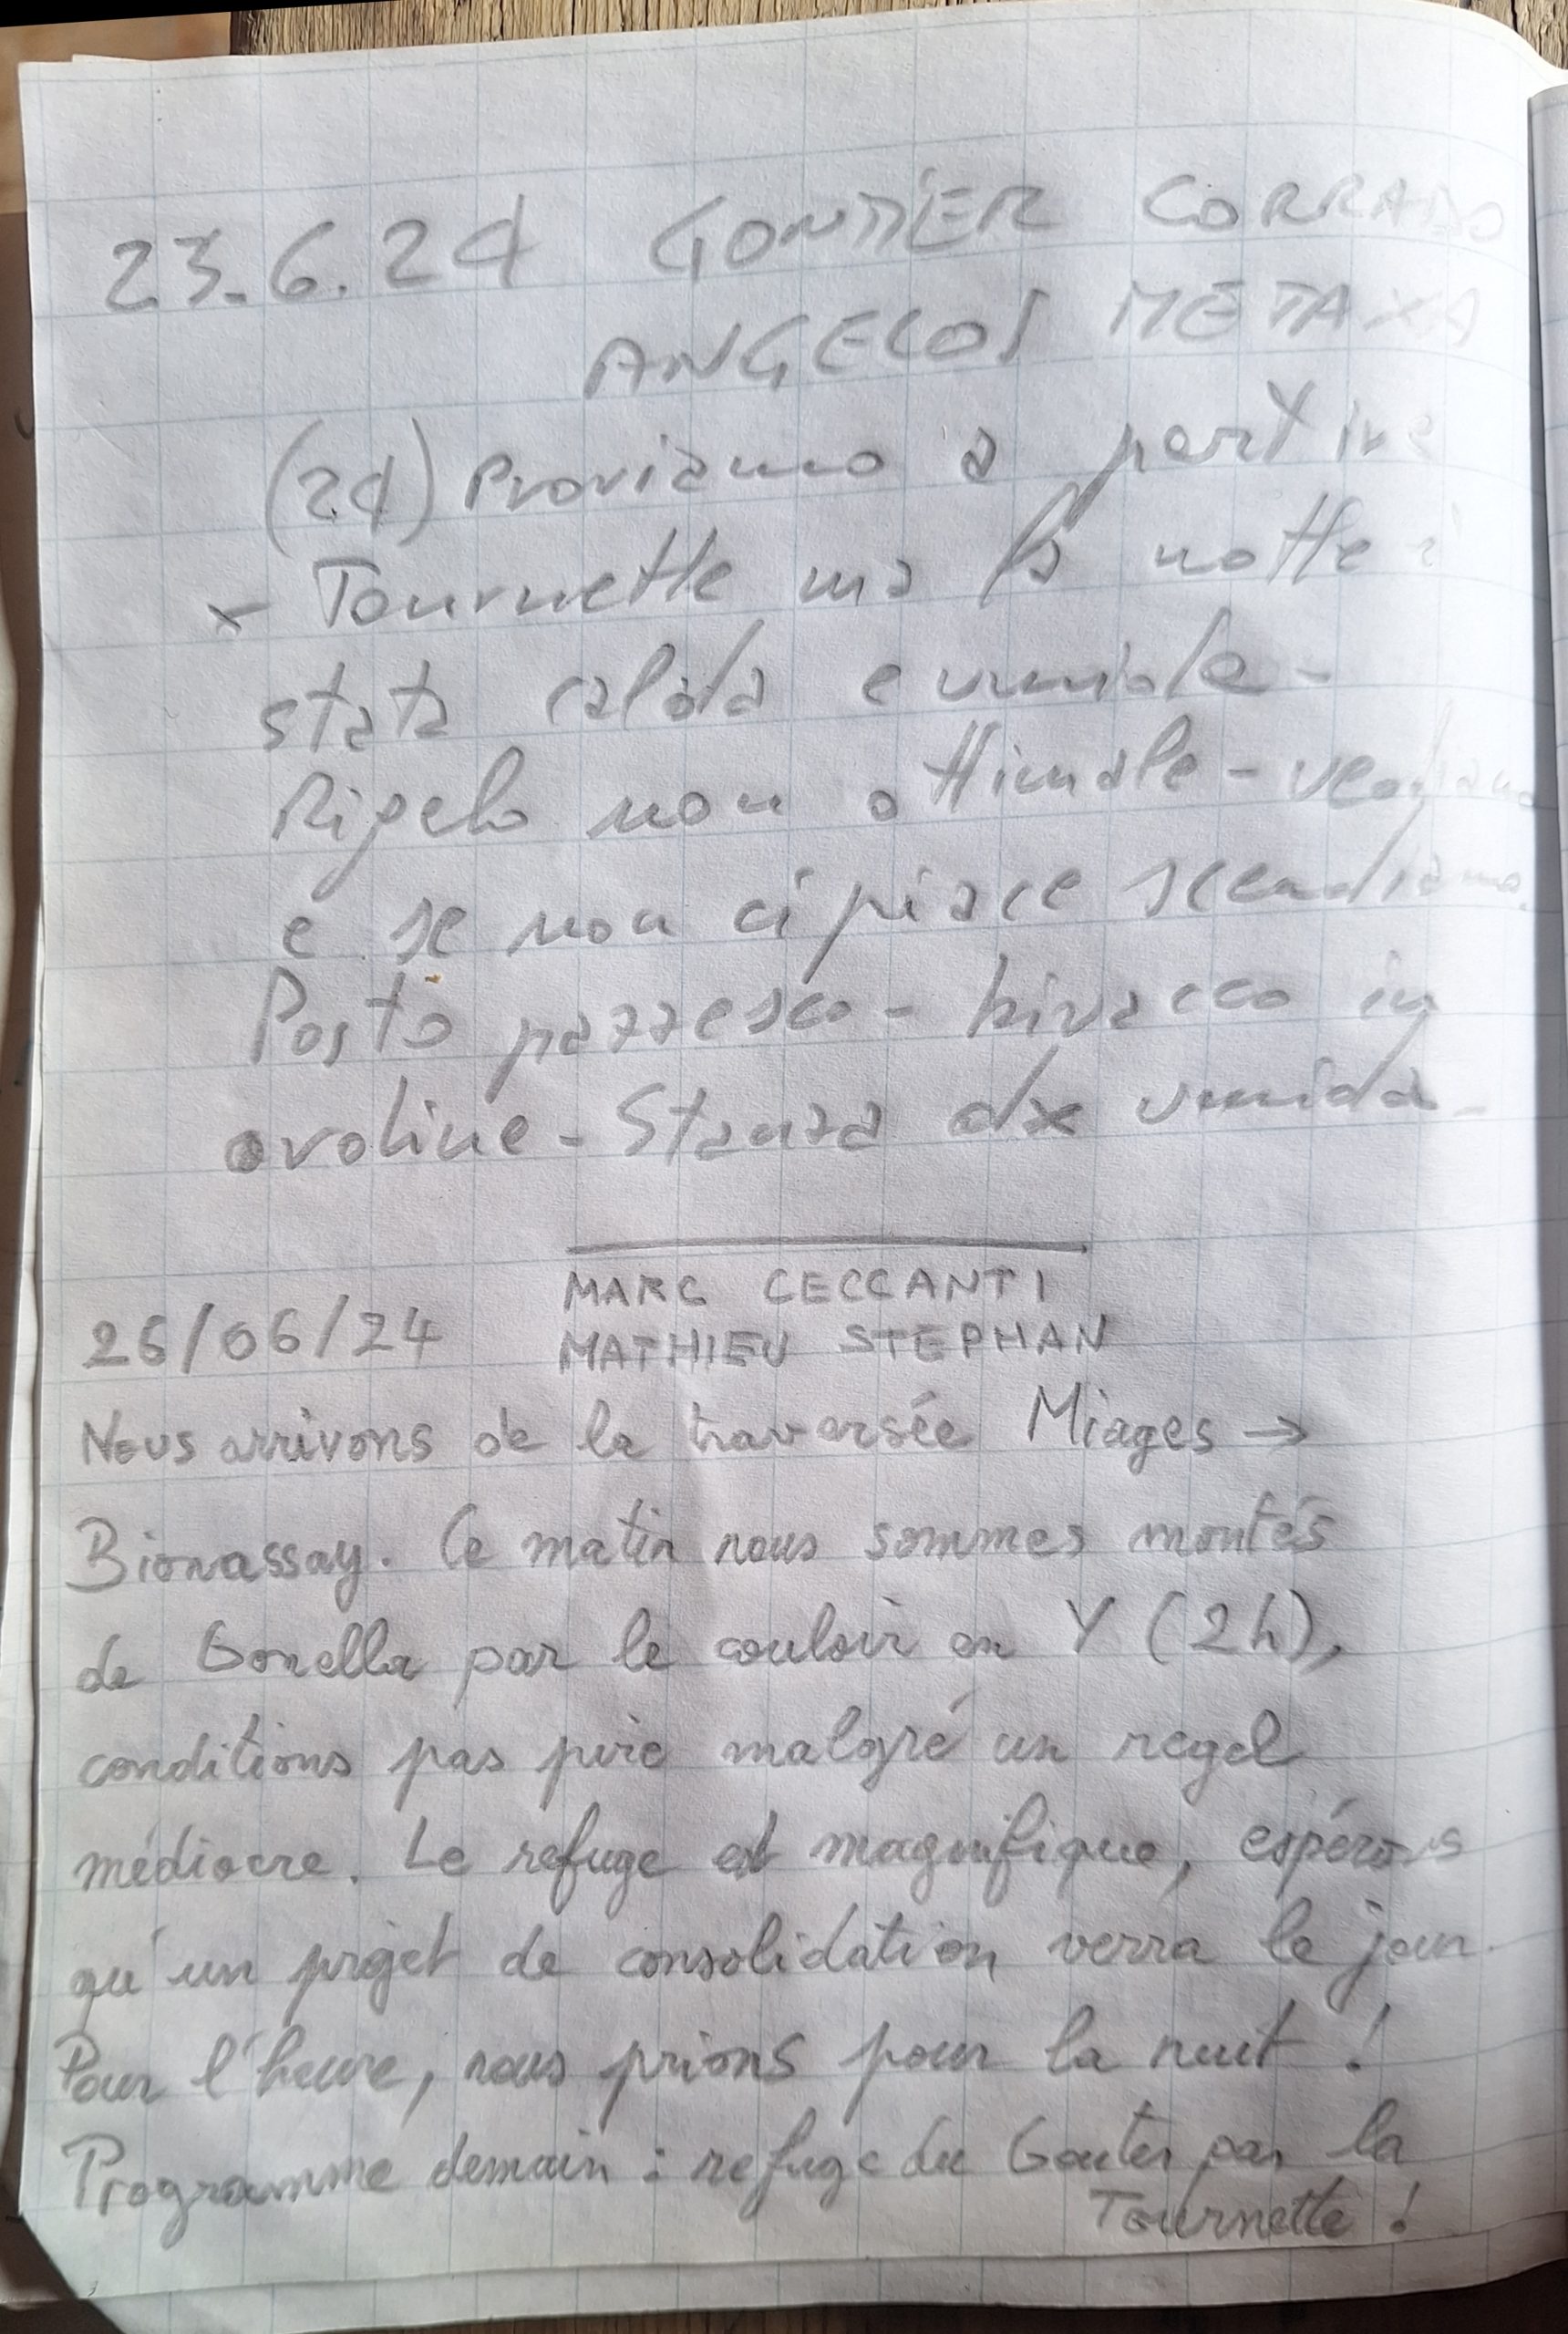 23.6.24 GONTIER CORRADO
ANGELOS METAXA
(24) Proviamo a partire
x Tournette ma la notte è
stata calda e umida -
Rigelo non ottimale - vediamo
e se non ci piace scendiamo.
Posto pazzesco - bivacco in
ordine - Stanza dx umida -
MARC CECCANTI
26/06/24 MATHIEU STEPHAN
Nous arrivons de la traversée Miages →
Bionassay. Ce matin nous sommes montés
de Gonella par le couloir en Y (2h),
conditions pas pire malgré un regel
médiocre. Le refuge est magnifique, espérons
qu'un projet de consolidation verra le jour.
Pour l'heure, nous prions pour la nuit !
Programme demain : refuge du Gouter par la
Tournette !